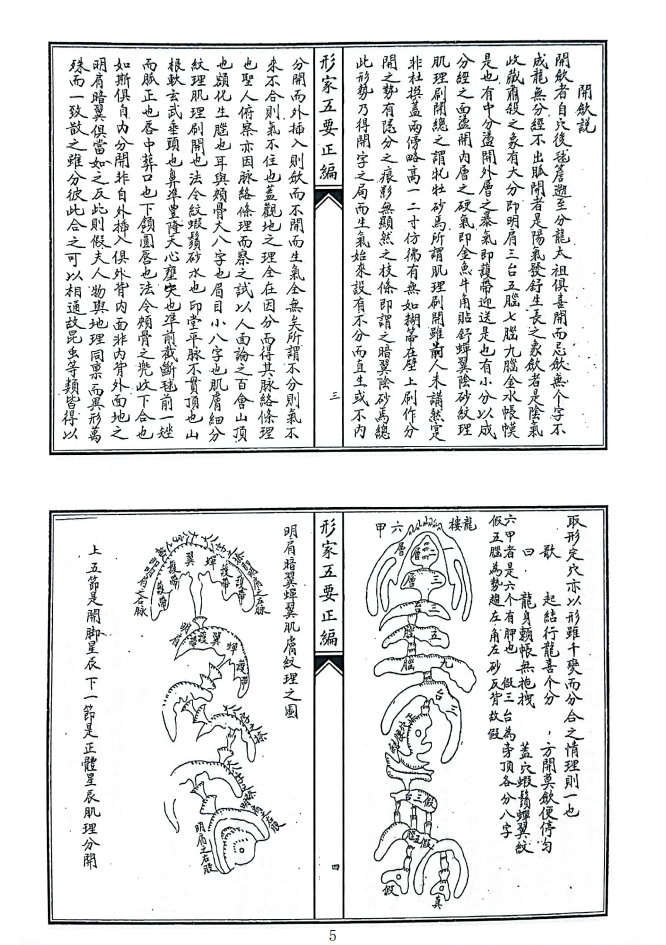 開歛說
開歛者自穴後毬簷遡至分龍太祖俱喜開而忌歛無个字不
成龍無分經不出脈開者是陽氣發舒生長之象歛者是陰氣
收藏肅殺之象有大分即明肩三台五腦七腦九腦金水帳模
是也有中分盪開外層之暴氣即護帶迎送是也有小分以成
分經之面盪開內層之硬氣即金魚牛角貼舒蟬翼陰砂紋理
肌理刷開總之謂牝牡砂焉所謂肌理刷開雖前人未講然寔
非杜撰蓋兩傍略高一二寸彷彿有無如糊箒在壁上刷作分
開之勢有隱分之痕影無顯然之枝條即謂之暗翼陰砂焉總
此形勢乃得開字之局而生氣始來設有不分而直生或不內
三
形家五要正編
分開而外插入則歛而不開而生氣全無矣所謂不分則氣不
來不合則氣不住也蓋觀地之理全在因分而得其脈絡條理
也聖人俯察亦因脈絡條理而察之試以人面論之百會山頂
也顖化生腦也耳與頰骨大八字也眉目小八字也肌膚細分
紋理肌理刷開也法令紋蝦鬚砂水也印堂平脈不貫頂也山
根軟玄武垂頭也鼻準豊隆天心壅突也準前截斷毬前一矬
而脈正也唇中葬口也下頷圓唇也法令頰骨之兜收下合也
如斯俱自內分開非自外插入俱外背內面非內背外面地之
明肩暗翼俱當如之反此則假夫人物與地理同稟而異形萬
殊而一致散之雖分彼此合之可以相通故昆虫等類皆得以
取形定穴亦以形雖千變而分合之情理則一也
歌 起結行龍喜个分 方開莫歛便停勻
曰 龍身霸帳無拖拽 蓋穴蝦鬚蟬翼紋
六甲者是六个有胛也 假三台為旁頂各分八字
假五腦為勢趨左 角左砂反背故假
龍樓
六甲
層
層三
台三
腦五
九
台三
台三假
腦五假
假
真
四
形家五要正編
明肩暗翼蟬翼肌膚紋理之圖
翼蟬
護帶
護帶
明肩
翼護
蟬
護帶
明肩之右股
上五節是開脚星辰下一節是正體星辰肌理分開
5